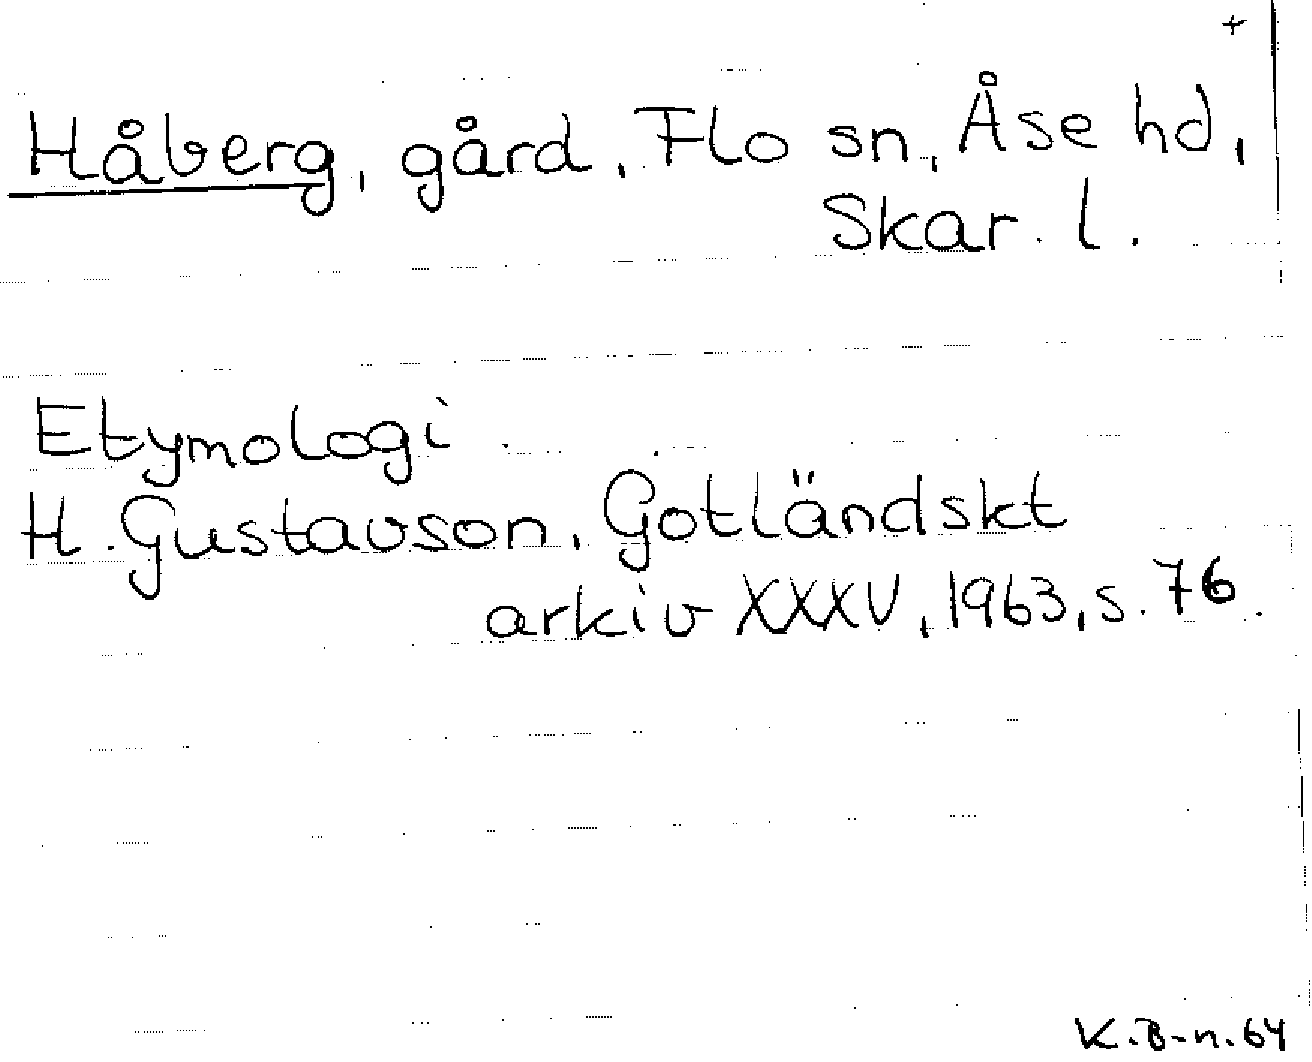 +
Håberg, gård, Flo sn, Åse hd,
Skar. l.
Etymologi
H. Gustavson, Gotländskt
arkiv XXXV, 1963, s. 76.
K.B-n. 64